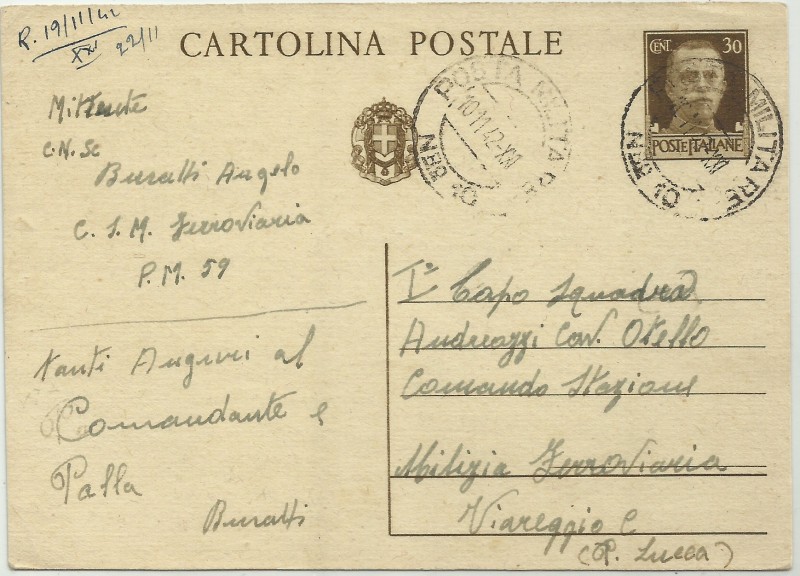 R. 19/11/42
XXI 22/11
CARTOLINA POSTALE
CENT. 30
POSTE ITALIANE
POSTA MILITARE
10.11.42-XXI
POSTA MILITARE
Mittente
C.N. Sc
Buratti Angelo
C. S. M. Ferroviaria
P.M. 59
tanti Auguri al
Comandante e
Palla
Buratti
1° Capo Squadra
Andreazzi Cav. Otello
Comando Stazione
Milizia Ferroviaria
Viareggio
(P. Lucca)